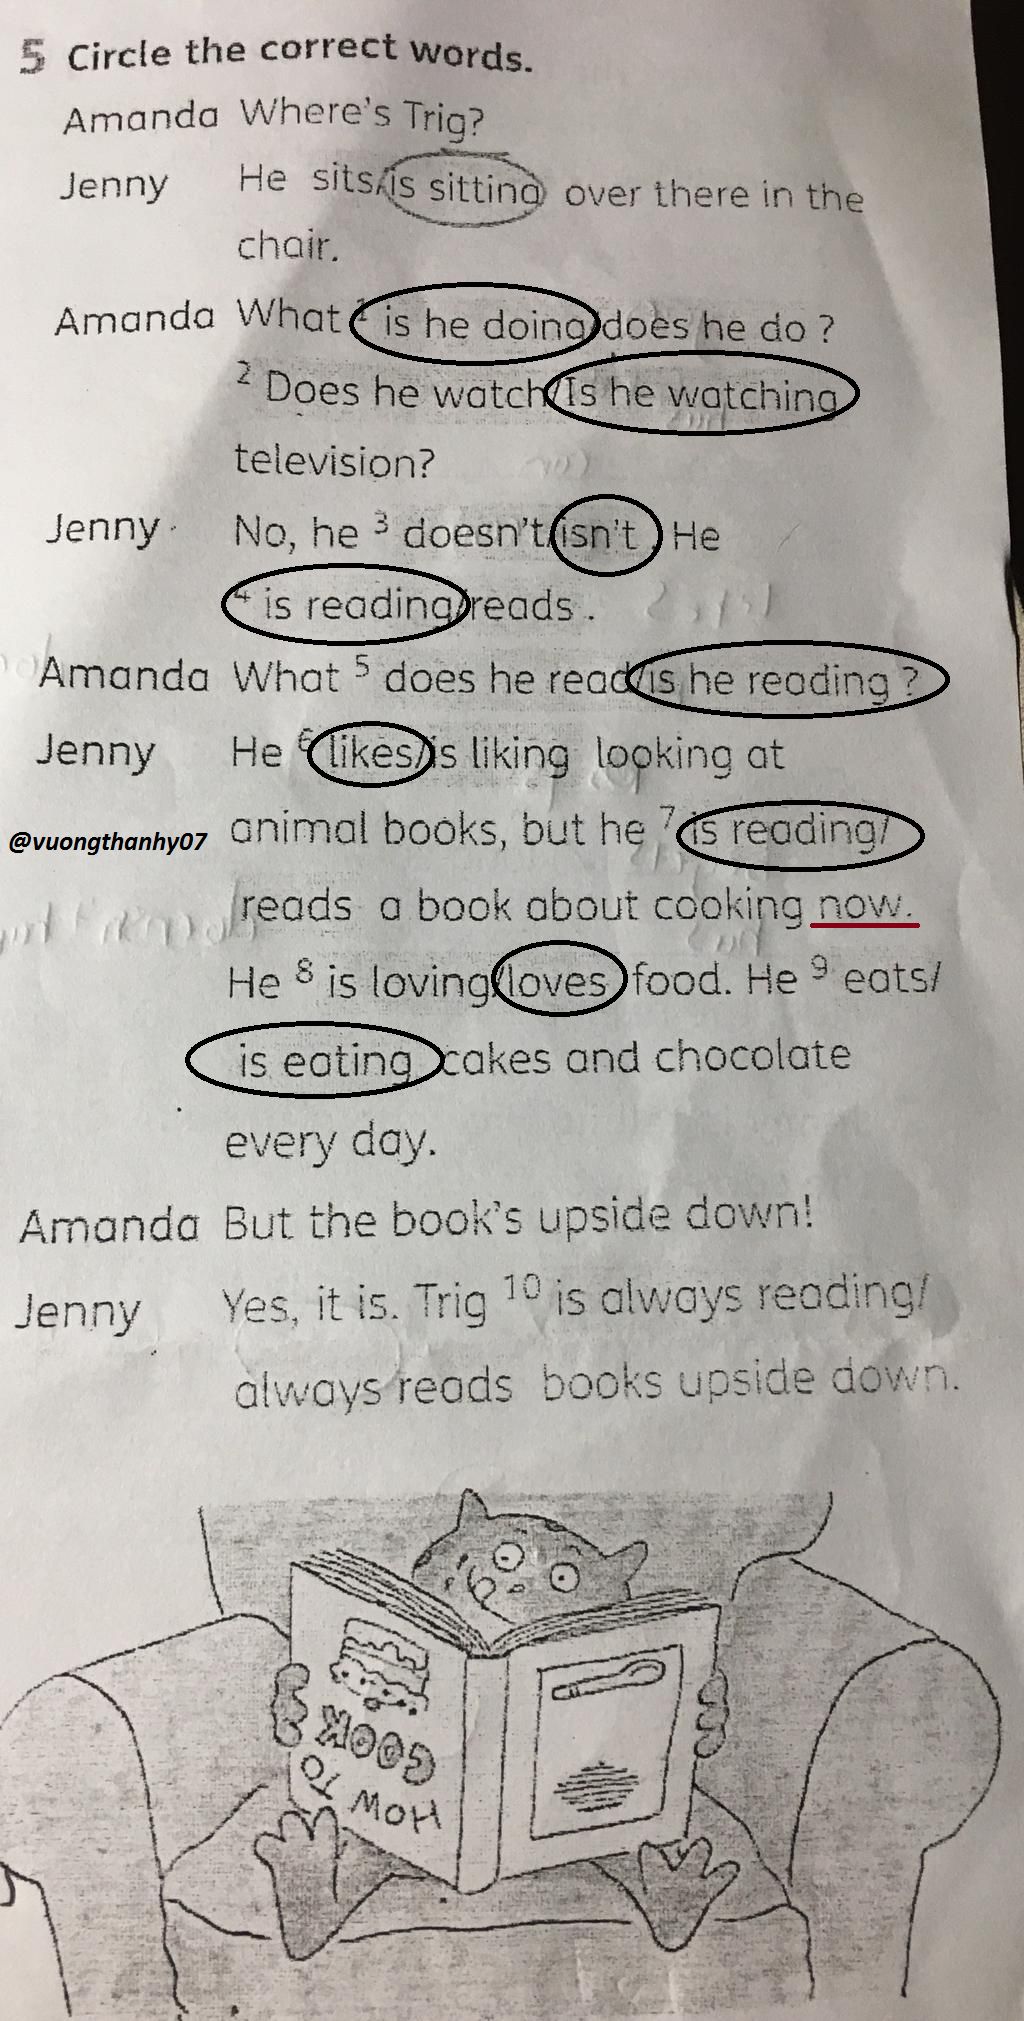 5 Circle the correct words.
Amanda Where's Trig?
Jenny He sits/is sitting over there in the
chair.
Amanda What 1 is he doing/does he do ?
2 Does he watch/Is he watching
television?
Jenny No, he 3 doesn't/isn't . He
4 is reading/reads .
Amanda What 5 does he read/is he reading ?
Jenny He 6 likes/is liking looking at
animal books, but he 7 is reading/
@vuongthanhy07
reads a book about cooking now.
He 8 is loving/loves food. He 9 eats/
is eating cakes and chocolate
every day.
Amanda But the book's upside down!
Jenny Yes, it is. Trig 10 is always reading/
always reads books upside down.
COOK
HOW TO